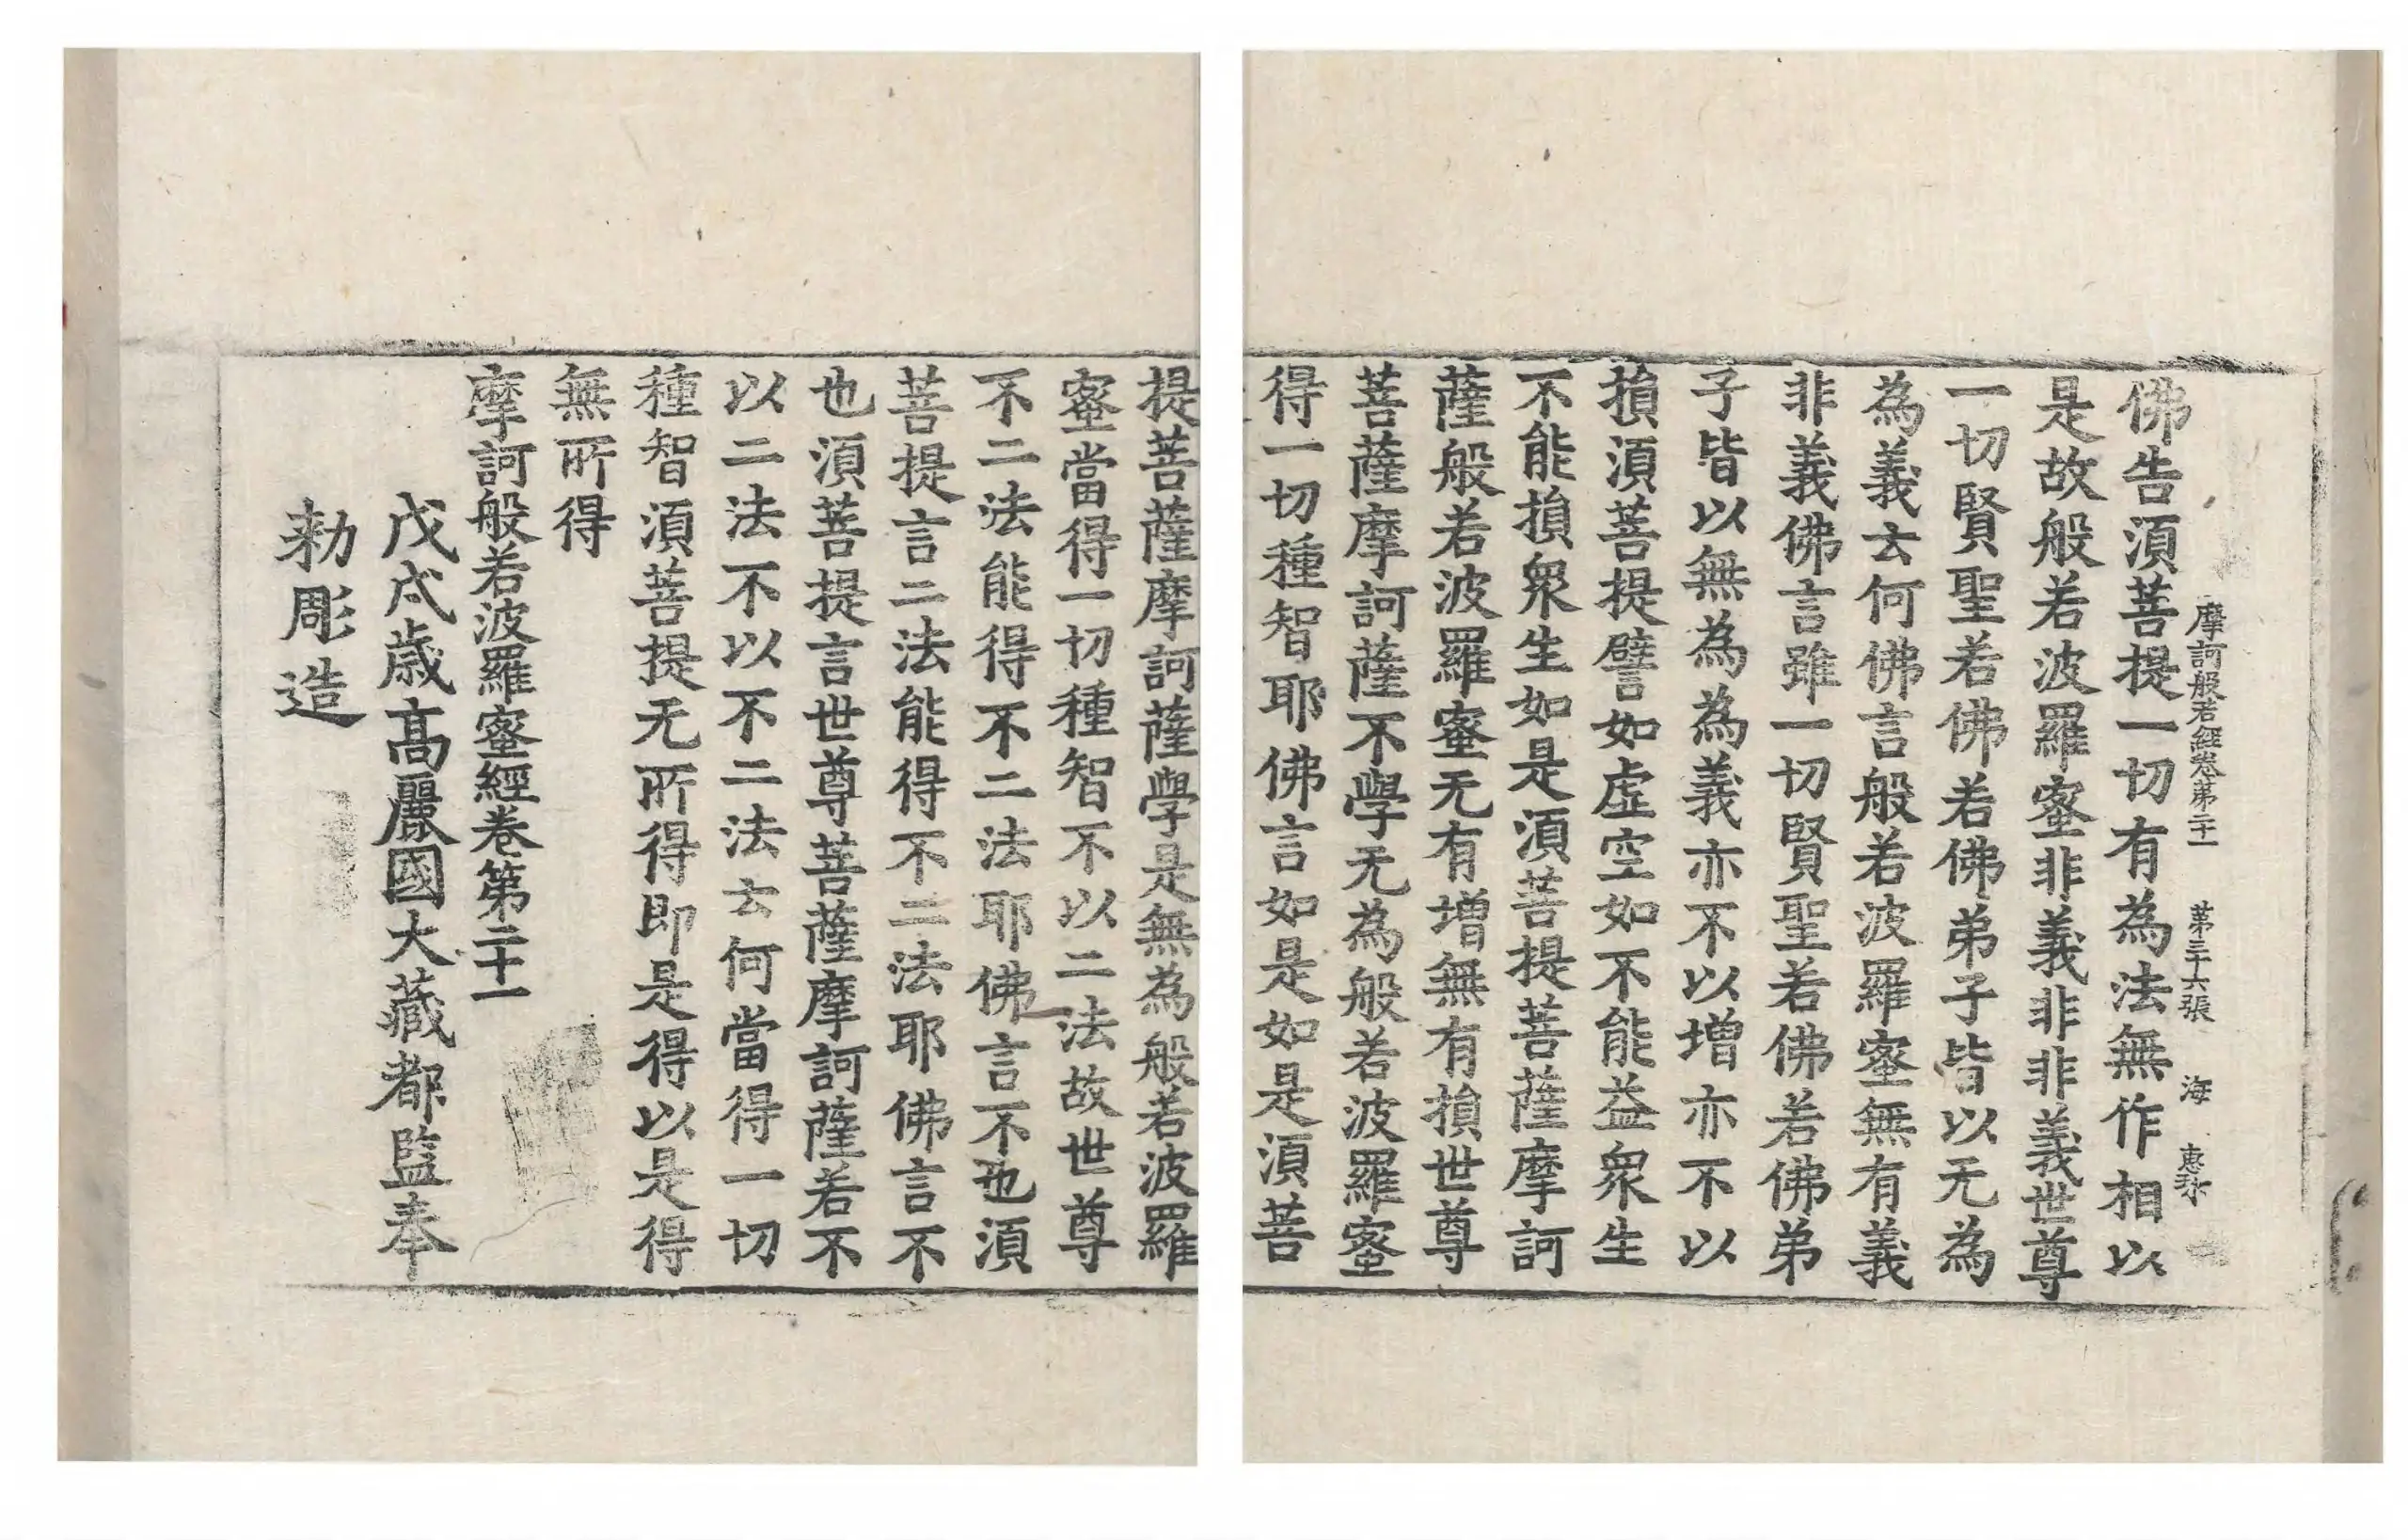 摩訶般若經卷第二十一 第三十六張 海 惠珎
佛告湏菩提一切有為法無作相以
是故般若波羅蜜非義非非義世尊
一切賢聖若佛若佛弟子皆以无為
為義云何佛言般若波羅蜜無有義
非義佛言雖一切賢聖若佛若佛弟
子皆以無為為義亦不以增亦不以
損湏菩提譬如虛空如不能益衆生
不能損衆生如是湏菩提菩薩摩訶
薩般若波羅蜜无有增無有損世尊
菩薩摩訶薩不學无為般若波羅蜜
得一切種智耶佛言如是如是湏菩
提菩薩摩訶薩學是無為般若波羅
蜜當得一切種智不以二法故世尊
不二法能得不二法耶佛言不也湏
菩提言二法能得不二法耶佛言不
也湏菩提言世尊菩薩摩訶薩若不
以二法不以不二法云何當得一切
種智湏菩提无所得即是得以是得
無所得
摩訶般若波羅蜜經卷第二十一
戊戌歲髙麗國大藏都監奉
勑彫造